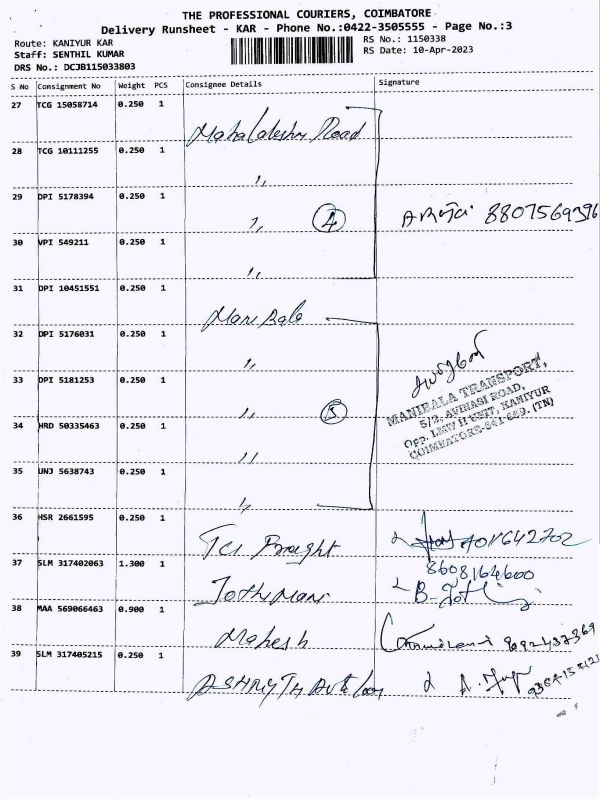 THE PROFESSIONAL COURIERS, COIMBATORE
Delivery Runsheet - KAR - Phone No.:0422-3505555 - Page No.:3
Route: KANIYUR KAR
RS No.: 1150338
Staff: SENTHIL KUMAR
RS Date: 10-Apr-2023
DRS No.: DCJB115033803
S No Consignment No Weight PCS Consignee Details Signature
27 TCG 15058714 0.250 1
28 TCG 10111255 0.250 1
"
29 DPI 5178394 0.250 1
" 4 8807569396
30 VPI 549211 0.250 1
"
31 DPI 10451551 0.250 1
Mani Bala
32 DPI 5176031 0.250 1
"
33 DPI 5181253 0.250 1
" 5
MANIBALA TRANSPORT,
5/2, AVINASI ROAD,
Opp. LMW II UNIT, KANIYUR
COIMBATORE-641 659. (TN)
34 HRD 50335463 0.250 1
"
35 UNJ 5638743 0.250 1
"
36 HSR 2661595 0.250 1
TCI
37 SLM 317402063 1.300 1
8608164600
Jothi Mani
38 MAA 569066463 0.900 1
Mahesh
39 SLM 317405215 0.250 1